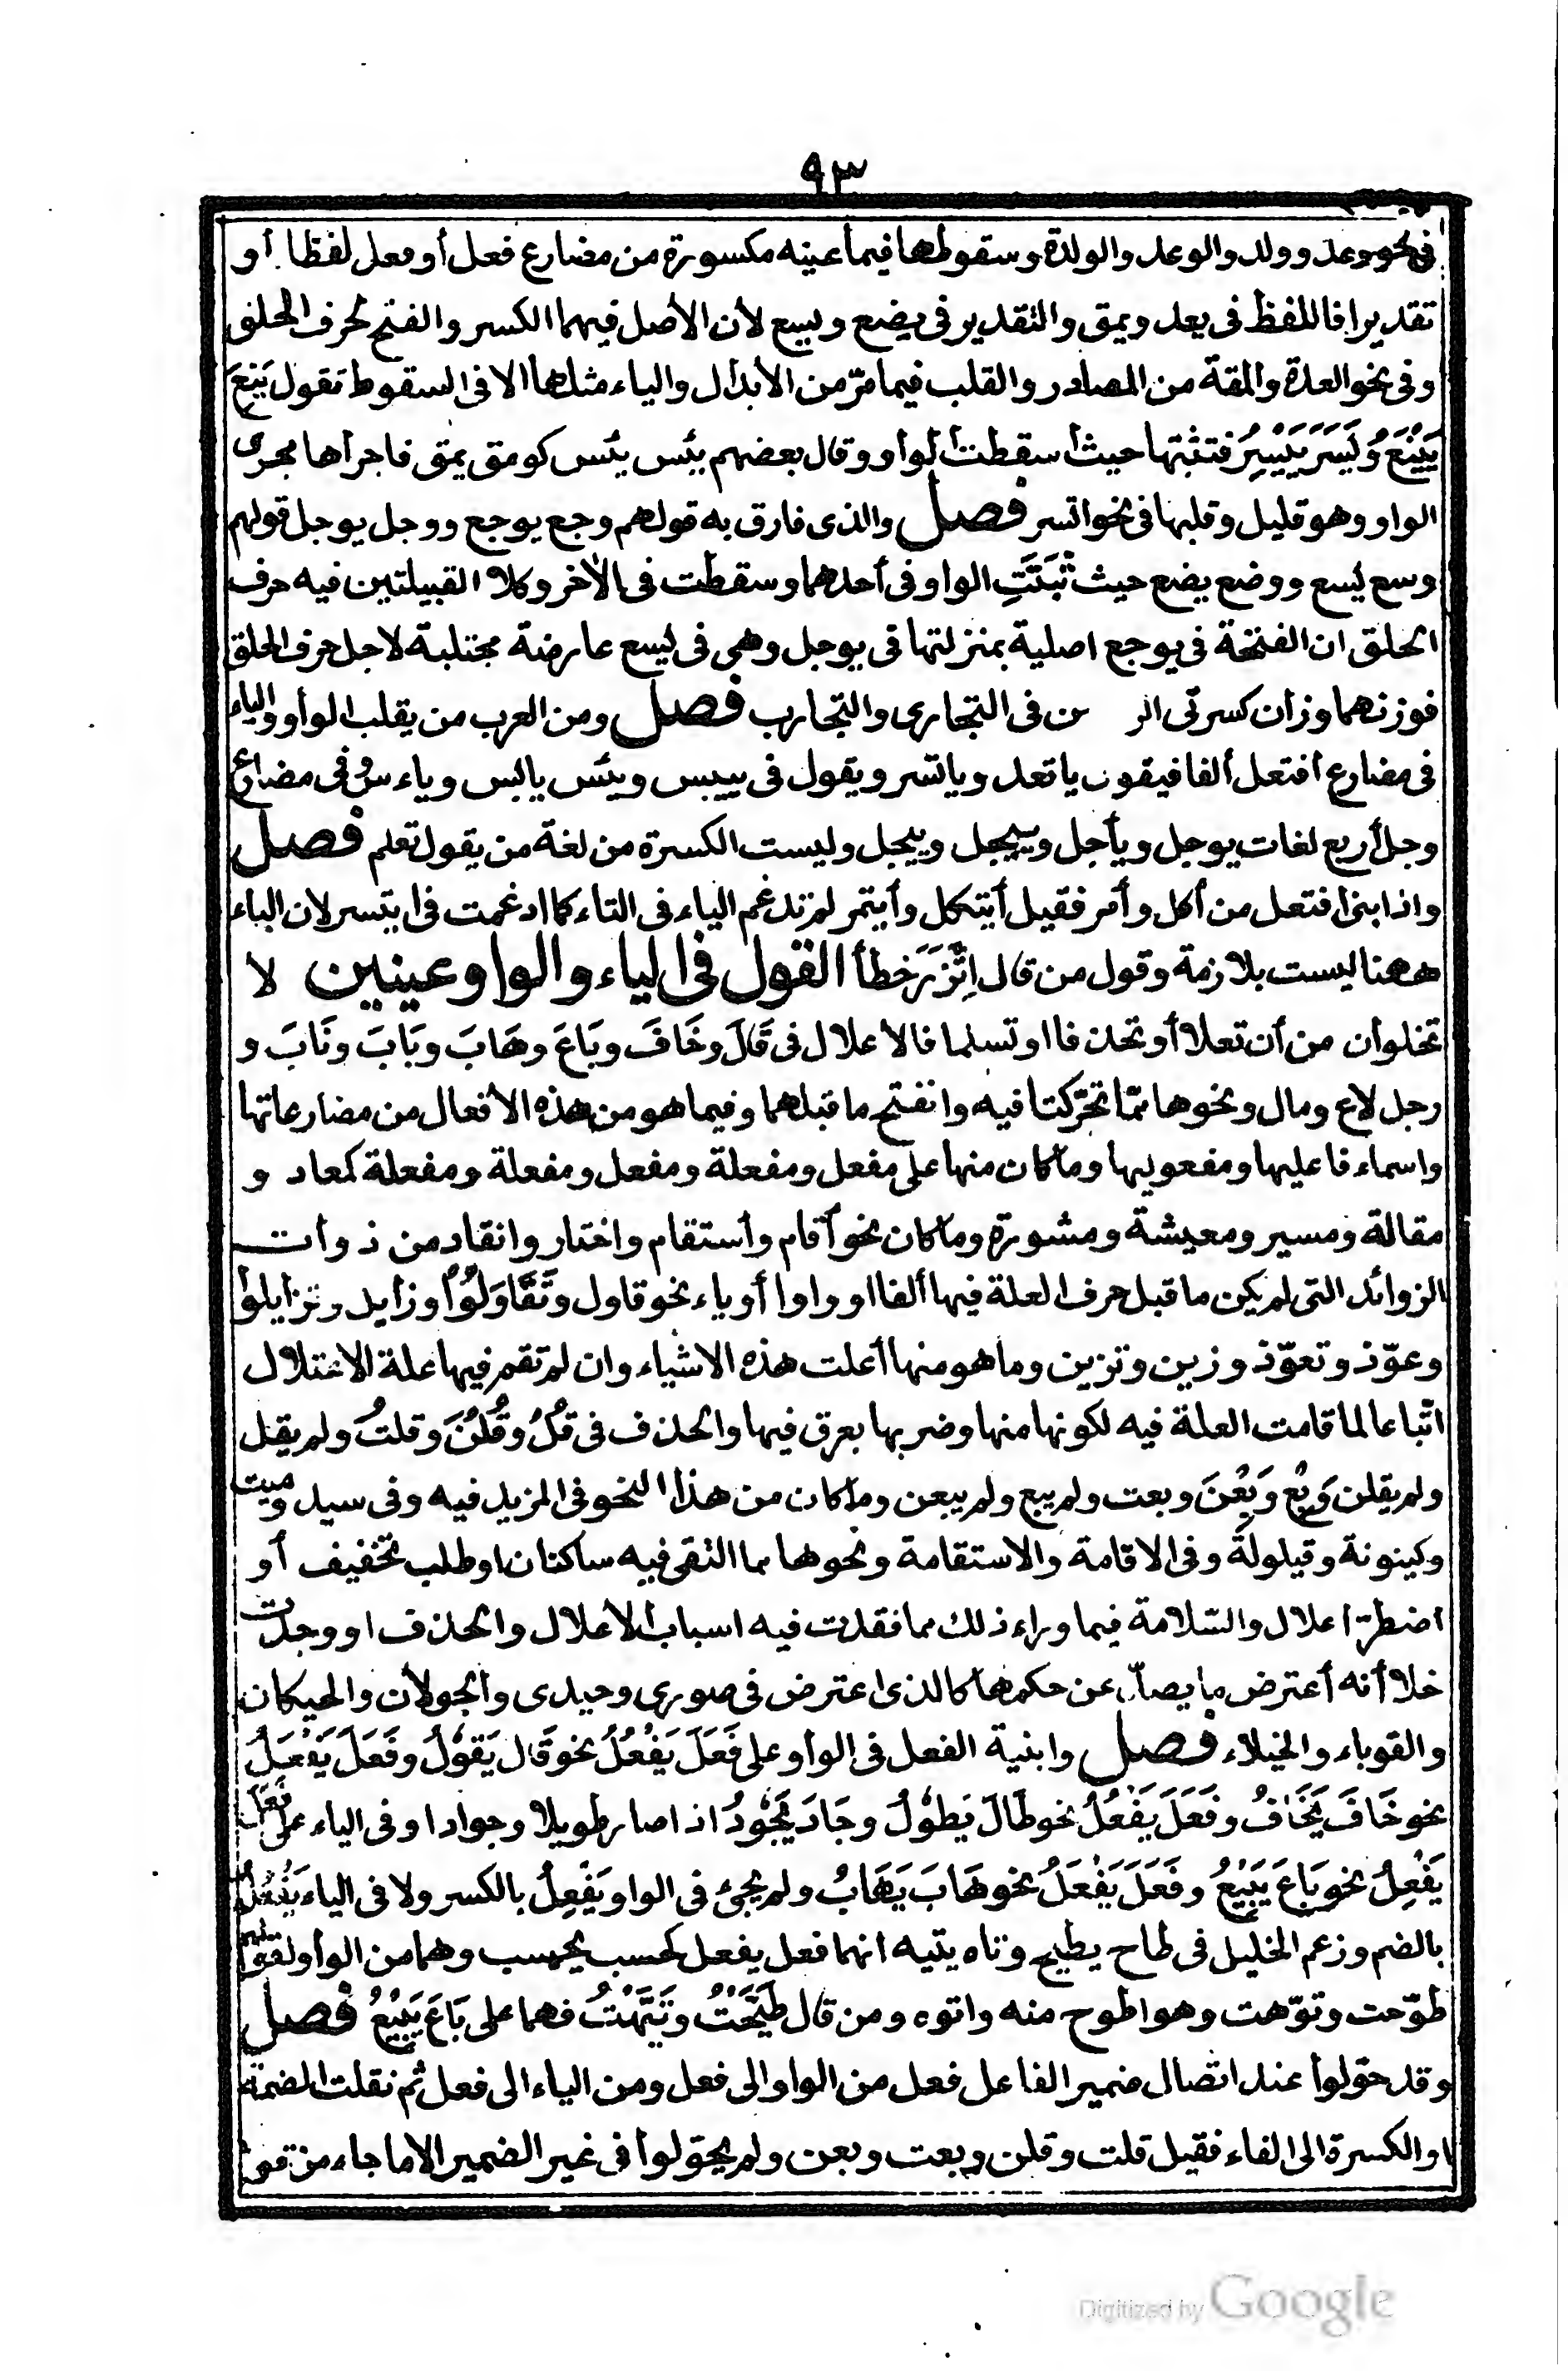 ٩٣
فى نحو وعد وولد والوعد والولدة وسقوطها فيما عينه مكسورة من مضارع فعل أو فعل لفظا أو
تقديرا فاللفظ فى يعد ويمق والتقدير فى يضع ويسع لأن الأصل فيهما الكسر والفتح لحرف الحلق
وفى نحو العدة والمقة من المصادر والقلب فيما مرّ من الأبدال والياء مثلها الا فى السقوط تقول يَنِعَ
يَيْنَعُ وَيَسَرَ يَيْسِرُ فتثبتها حيث أسقطت ألواو وقال بعضهم يئس يئس كومق يمق فاجراها مجرى
الواو وهو قليل وقلبها فى نحو اتسر فصل والذى فارق به قولهم وجع يوجع ووجل يوجل قولهم
وسع يسع ووضع يضع حيث ثَبَتَتِ الواو فى أحدهما وسقطت فى الأخر وكلا القبيلتين فيه حرف
الحلق ان الفتحة فى يوجع اصلية بمنزلتها فى يوجل وهى فى يسع عارضة مجتلبة لاجل حرف الحلق
فوزنهما وزان كسرتى الر ين فى التجارى والتجارب فصل ومن العرب من يقلب الواو والياء
فى مضارع افتعل ألفا فيقون ياتعد وياتسر ويقول فى ييبس وييئس يابس وياءس وفى مضارع
وجل أربع لغات يوجل ويأجل وييجل وييجل وليست الكسرة من لغة من يقول تعلم فصل
واذا بنى افتعل من أكل وأمر فقيل أيتكل وأيتمر لم تدغم الياء فى التاء كما ادغمت فى ايتسر لان الياء
ههنا ليست بلازمة وقول من قال اِتَّزَرَ خطأ القول فى الياء والواو عينين لا
تخلوان من أن تعلا أو تحذفا او تسلما فالاعلال فى قَالَ وخَافَ وبَاعَ وهَابَ وبَابَ ونَابَ و
رجل لاع ومال ونحوها ممّا تحرّكتا فيه وانفتح ما قبلهما وفيما هو من هذه الأفعال من مضارعاتها
واسماء فاعليها ومفعوليها وما كان منها على مفعل ومفعلة ومفعل ومفعلة ومفعلة كمعاد و
مقالة ومسير ومعيشة ومشورة وما كان نحو أقام وأستقام واختار وانقاد من ذوات
الزوائد التى لم يكن ما قبل حرف العلة فيها ألفا او واوا أو ياء نحو قاول وتَقَاوَلُوْا وزايد وتزايلوا
وعوّذ وتعوّذ وزين وتزين وما هو منها أعلت هذه الاشياء وان لم تقم فيها علة الاعتلال
اتّباعا لما قامت العلة فيه لكونها منها وضربها بعرق فيها والحذف فى قُلْ وقُلْنَ وقلتُ ولم يقل
ولم يقلن وَبِعْ وَبِعْنَ وبعت ولم يبع ولم يبعن وما كان من هذا النحو فى المزيد فيه وفى سيد وميت
وكينونة وقيلولة وفى الاقامة والاستقامة ونحوها مما التقى فيه ساكنان او طلب تخفيف أو
اضطرّ اعلال والسّلامة فيما وراء ذلك مما فقدت فيه اسباب الأعلال والحذف او وجدت
خلا أنه أعترض ما يصدّ عن حكمها كالذى اعترض فى صورى وحيدى والجولان والحيكان
والقوباء والخيلاء فصل وابنية الفعل فى الواو على فَعَلَ يَفْعُلُ نحو قَال يَقُوْلُ وفَعَلَ يَفْعَلُ
نحو خَافَ يَخَافُ وفَعَلَ يَفْعُلُ نحو طَالَ يَطُوْلُ وجَادَ يَجُوْدُ اذا صار طويلا وجوادا وفى الياء على فَعَلَ
يَفْعِلُ نحو بَاعَ يَبِيْعُ وفَعَلَ يَفْعَلُ نحو هَابَ يَهَابُ ولم يجئ فى الواو يَفْعِلُ بالكسر ولا فى الياء يَفْعُلُ
بالضم وزعم الخليل فى طاح يطيح وتاه يتيه انهما فعل يفعل كحسب يحسب وهما من الواو لقولهم
طوّحت وتوّهت وهو اطوح منه واتوه ومن قال طَيَّحْتُ وتَيَّهْتُ فهما على بَاعَ يَبِيْعُ فصل
وقد حوّلوا عند اتصال ضمير الفاعل فعل من الواو الى فعل ومن الياء الى فعل ثم نقلت الضمة
او الكسرة الى الفاء فقيل قلت وقلن وبعت وبعن ولم يحوّلوا فى غير الضمير الا ما جاء من
Digitized by Google